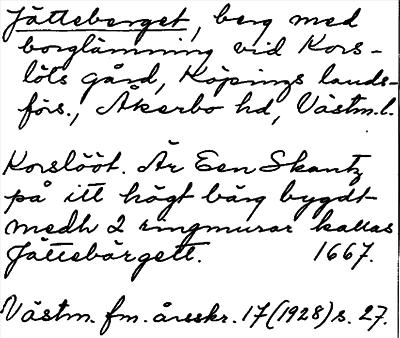 Jätteberget, berg med
borglämning vid Kors-
löts gård, Köpings lands-
förs., Åkerbo hd, Västm.l.
Korslööt. Är Een Skantz
på itt högt bärg bygdt
medh 2 ringmurar kallas
Jättebärgett. 1667.
Västm. fm. årsskr. 17 (1928) s. 27.